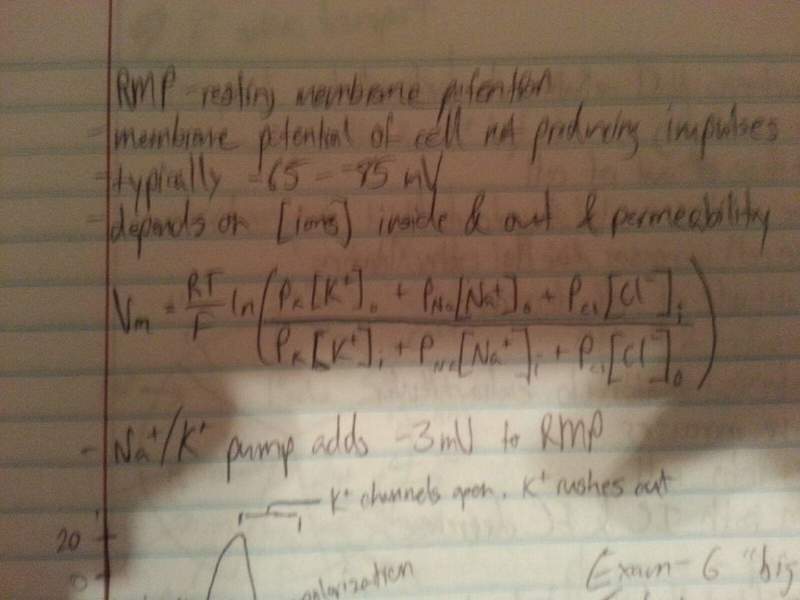 RMP - resting membrane potention
- membrane potential of cell not producing impulses
- typically -65 - -85 mV
- depends on [ions] inside & out & permeability
Vm = RT/F ln(PK[K+]o + PNa[Na+]o + PCl[Cl-]i / PK[K+]i + PNa[Na+]i + PCl[Cl-]o)
- Na+/K+ pump adds -3mV to RMP
K+ channels open, K+ rushes out
20
0
Exam - 6 "big